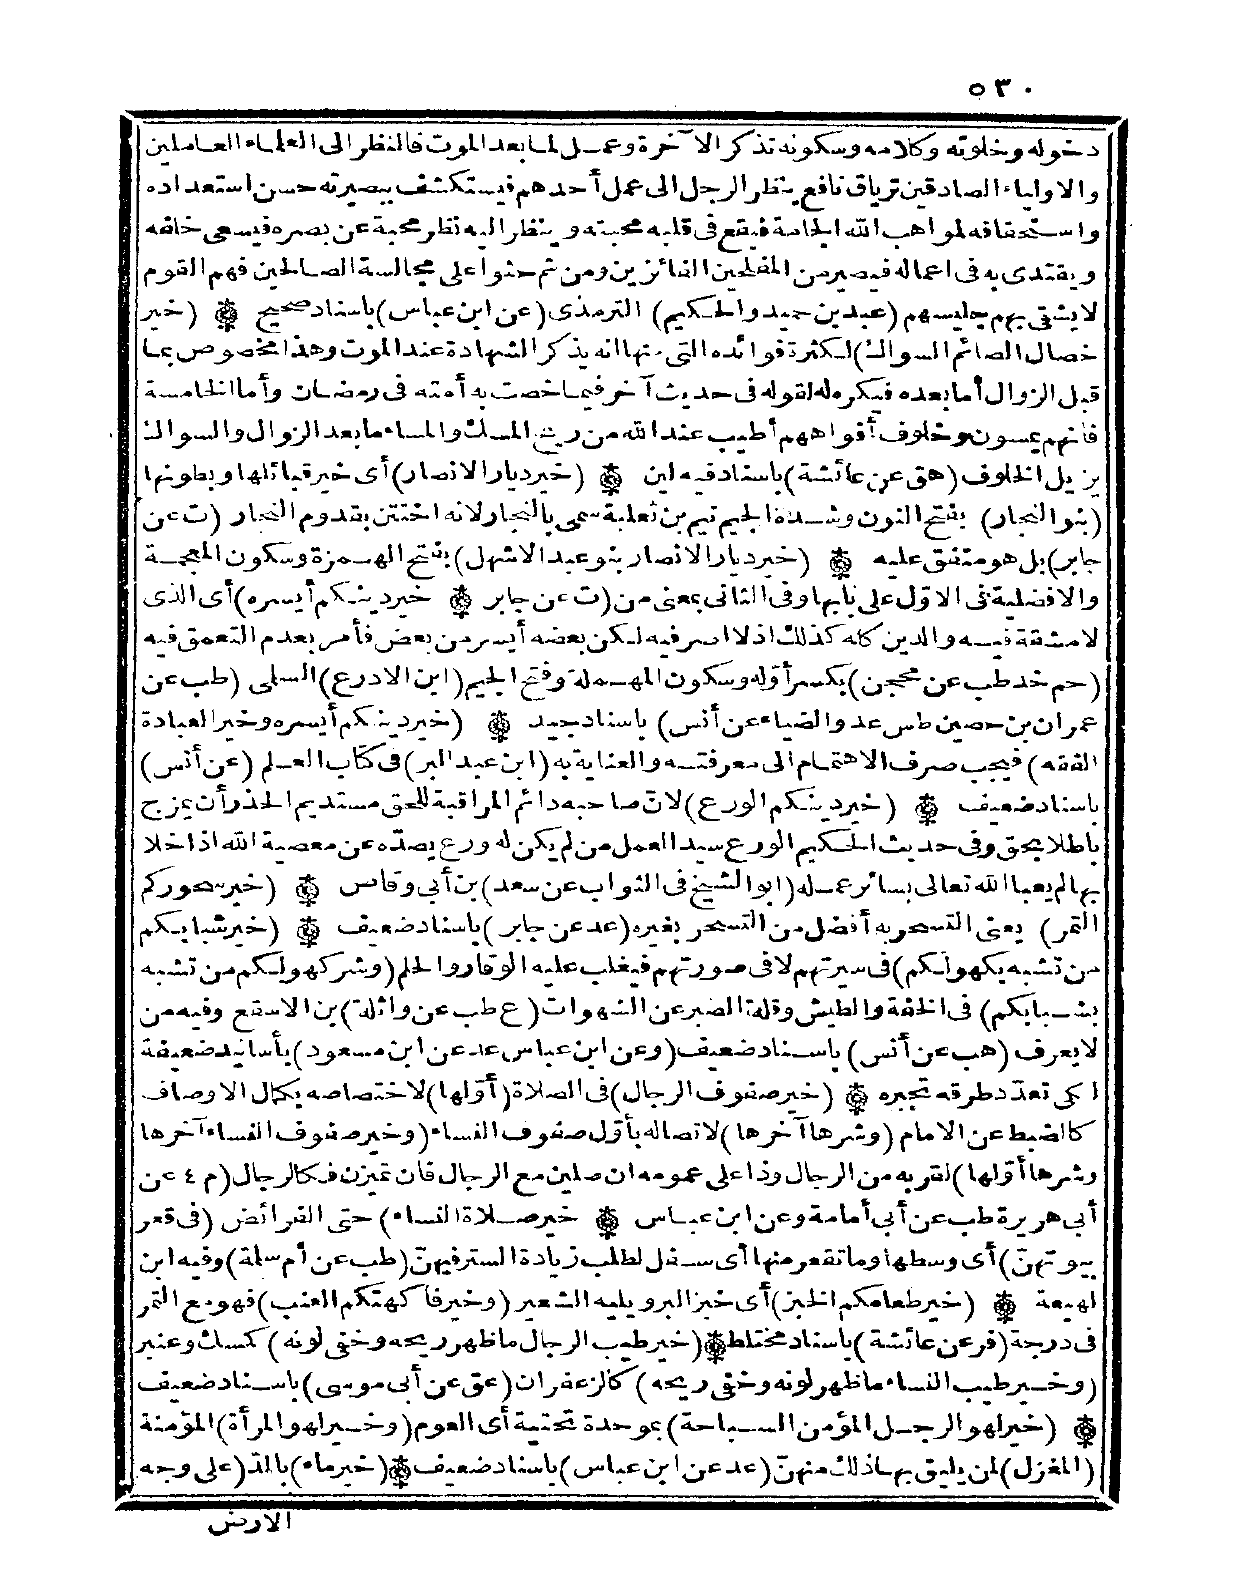 ٥٣٠
دخوله وخلوته وكلامه وسكونه تذكر الآخرة وعمل لما بعد الموت فالنظر الى العلماء العاملين
والاولياء الصادقين ترياق نافع ينظر الرجل الى عمل أحدهم فيستكشف ببصيرته حسن استعداده
واستحقاقه لمواهب الله الخاصة فيقع فى قلبه محبته وينظر اليه نظر محبة عن بصره فيسعى خلفه
ويقتدى به فى اعماله فيصير من المفلحين الفائزين ومن ثم حثوا على مجالسة الصالحين فهم القوم
لا يشقى بهم جليسهم (عبد بن حميد والحكيم) الترمذى (عن ابن عباس) باسناد صحيح ۞ (خير
خصال الصائم السواك) لكثرة فوائده التى منها انه يذكر الشهادة عند الموت وهذا مخصوص بما
قبل الزوال أما بعده فيكره له لقوله فى حديث آخر فيما خصت به أمته فى رمضان وأما الخامسة
فانهم يمسون وخلوف أفواههم أطيب عند الله من ريح المسك والمساء ما بعد الزوال والسواك
يزيل الخلوف (هق عن عائشة) باسناد فيه لين ۞ (خير ديار الانصار) أى خير قبائلها وبطونها
(بنو النجار) بفتح النون وشدة الجيم تيم بن ثعلبة سمى بالنجار لانه اختتن بقدوم النجار (ت عن
جابر) بل هو متفق عليه ۞ (خير ديار الانصار بنو عبد الاشهل) بفتح الهمزة وسكون المعجمة
والافضلية فى الاول على بابها وفى الثانى بمعنى من (ت عن جابر ۞ خير دينكم أيسره) أى الذى
لا مشقة فيه والدين كله كذلك اذ لا اصر فيه لكن بعضه أيسر من بعض فأمر بعدم التعمق فيه
(حم خد طب عن محجن) بكسر أوله وسكون المهملة وفتح الجيم (ابن الادرع) السلمى (طب عن
عمران بن حصين طس عد والضياء عن أنس) باسناد جيد ۞ (خير دينكم أيسره وخير العبادة
الفقه) فيجب صرف الاهتمام الى معرفته والعناية به (ابن عبد البر) فى كتاب العلم (عن أنس)
باسناد ضعيف ۞ (خير دينكم الورع) لان صاحبه دائم المراقبة للحق مستديم الحذر أن يمزج
باطلا بحق وفى حديث الحكيم الورع سيد العمل من لم يكن له ورع يصده عن معصية الله اذا خلا
بها لم يعبا الله تعالى بسائر عمله (ابو الشيخ فى الثواب عن سعد) بن أبى وقاص ۞ (خير سحوركم
التمر) يعنى التسحر به أفضل من التسحر بغيره (عد عن جابر) باسناد ضعيف ۞ (خير شبابكم
من تشبه بكهولكم) فى سيرتهم لا فى صورتهم فيغلب عليه الوقار والحلم (وشر كهولكم من تشبه
بشبابكم) فى الخفة والطيش وقلة الصبر عن الشهوات (ع طب عن واثلة) بن الاسقع وفيه من
لا يعرف (هب عن أنس) باسناد ضعيف (وعن ابن عباس عد عن ابن مسعود) بأسانيد ضعيفة
لكن تعدد طرقه تجبره ۞ (خير صفوف الرجال) فى الصلاة (أولها) لاختصاصه بكمال الاوصاف
كالضبط عن الامام (وشرها آخرها) لاتصاله بأول صفوف النساء (وخير صفوف النساء آخرها
وشرها أولها) لقربه من الرجال وذا على عمومه ان صلين مع الرجال فان تميزن فكالرجال (م ٤ عن
أبى هريرة طب عن أبى أمامة وعن ابن عباس ۞ خير صلاة النساء) حتى الفرائض (فى قعر
بيوتهن) أى وسطها وما تقعر منها أى سفل لطلب زيادة الستر فيهن (طب عن أم سلمة) وفيه ابن
لهيعة ۞ (خير طعامكم الخبز) أى خبز البر ويليه الشعير (وخير فاكهتكم العنب) فهو مع التمر
فى درجة (فر عن عائشة) باسناد مختلط ۞ (خير طيب الرجال ما ظهر ريحه وخفى لونه) كمسك وعنبر
(وخير طيب النساء ما ظهر لونه وخفى ريحه) كالزعفران (عق عن أبى موسى) باسناد ضعيف
۞ (خير لهو الرجل المؤمن السباحة) بموحدة تحتية أى العوم (وخير لهو المرأة) المؤمنة
(المغزل) لمن يليق بها ذلك منهن (عد عن ابن عباس) باسناد ضعيف ۞ (خير ماء) بالمد (على وجه
الارض